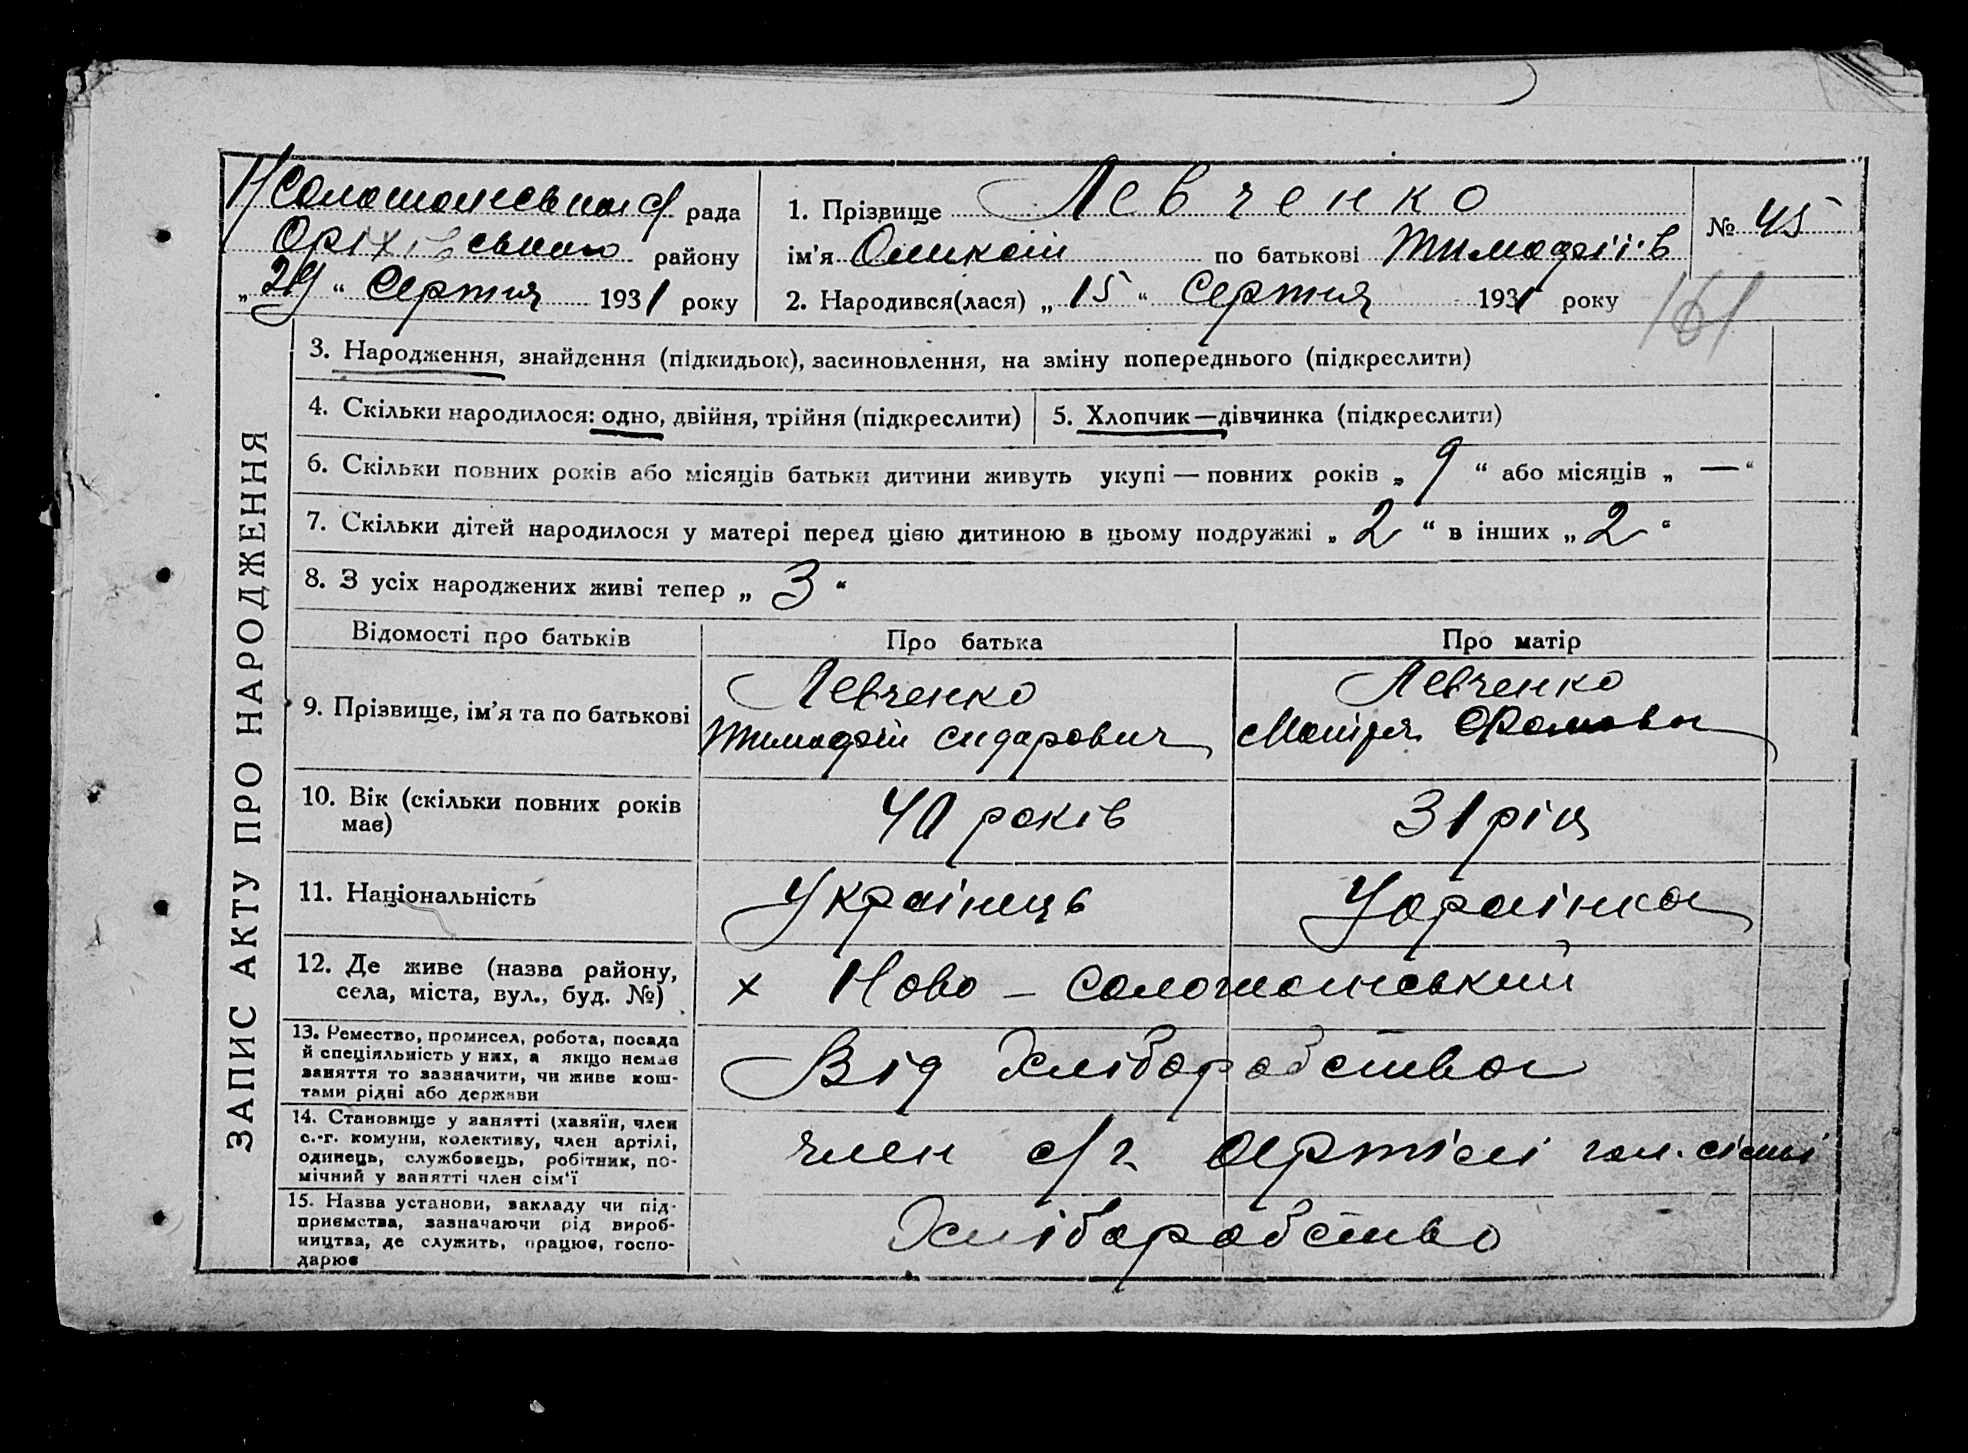 Н Солошанська рада
Оріхівського району
„ 29 “ Серпня 1931 року
1. Прізвище Левченко
ім’я Олексій по батькові Тимофіїв
№ 45
2. Народився(лася) „ 15 “ Серпня 1931 року
161
ЗАПИС АКТУ ПРО НАРОДЖЕННЯ
3. Народження, знайдення (підкидьок), засиновлення, на зміну попереднього (підкреслити)
4. Скільки народилося: одно, двійня, трійня (підкреслити)
5. Хлопчик—дівчинка (підкреслити)
6. Скільки повних років або місяців батьки дитини живуть укупі — повних років „ 9 “ або місяців „ — “
7. Скільки дітей народилося у матері перед цією дитиною в цьому подружжі „ 2 “ в інших „ 2 “
8. З усіх народжених живі тепер „ 3 “
Відомості про батьків
Про батька
Про матір
9. Прізвище, ім’я та по батькові
Левченко
Тимофій Сидарович
Левченко
Фомовна
10. Вік (скільки повних років
має)
40 років
31 рік
11. Національність
Українець
Українка
12. Де живе (назва району,
села, міста, вул., буд. №)
х Ново – Солошанський
13. Ремество, промисел, робота, посада
й спеціяльність у них, а якщо немає
заняття то зазначити, чи живе кош-
тами рідні або держави
Від Хліборобства
14. Становище у занятті (хазяїн, член
с.-г. комуни, колективу, член артілі,
одинець, службовець, робітник, по-
мічний у занятті член сім’ї
член с/г артілі гол. сімї
15. Назва установи, закладу чи під-
приємства, зазначаючи рід вироб-
ництва, де служить, працює, госпо-
дарює
Хліборобство